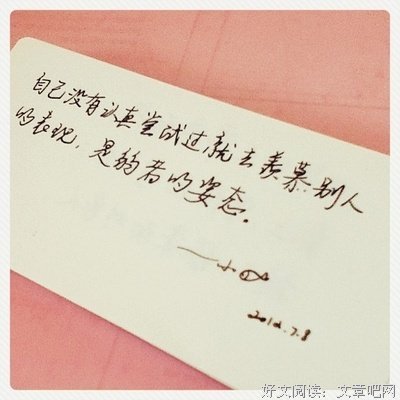 自己没有认真尝试过,就去羡慕别人
的表现,是弱者的姿态.
——小
7.8
好文阅读:文章吧网